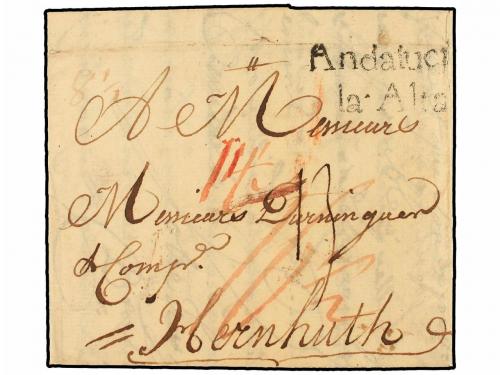 Andaluci
la Alta
A Messieurs
Messieurs Durninguer
& Compe.
= Hernhuth